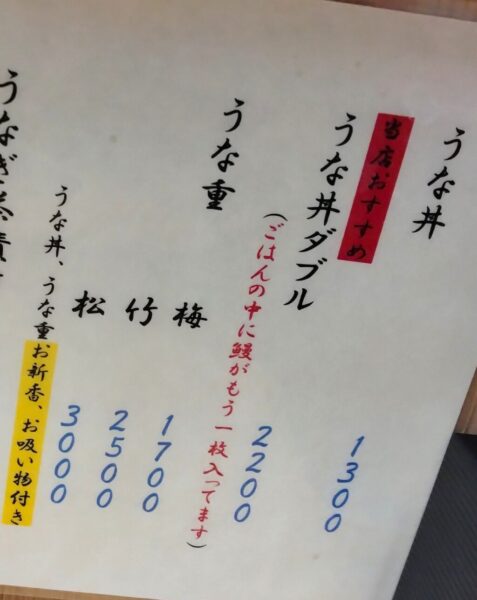 うな丼
1300
当店おすすめ
うな丼ダブル
2200
(ごはんの中に鰻がもう一枚入ってます)
うな重
梅
1700
竹
2500
松
3000
うな丼、うな重お新香、お吸い物付き
うなぎ